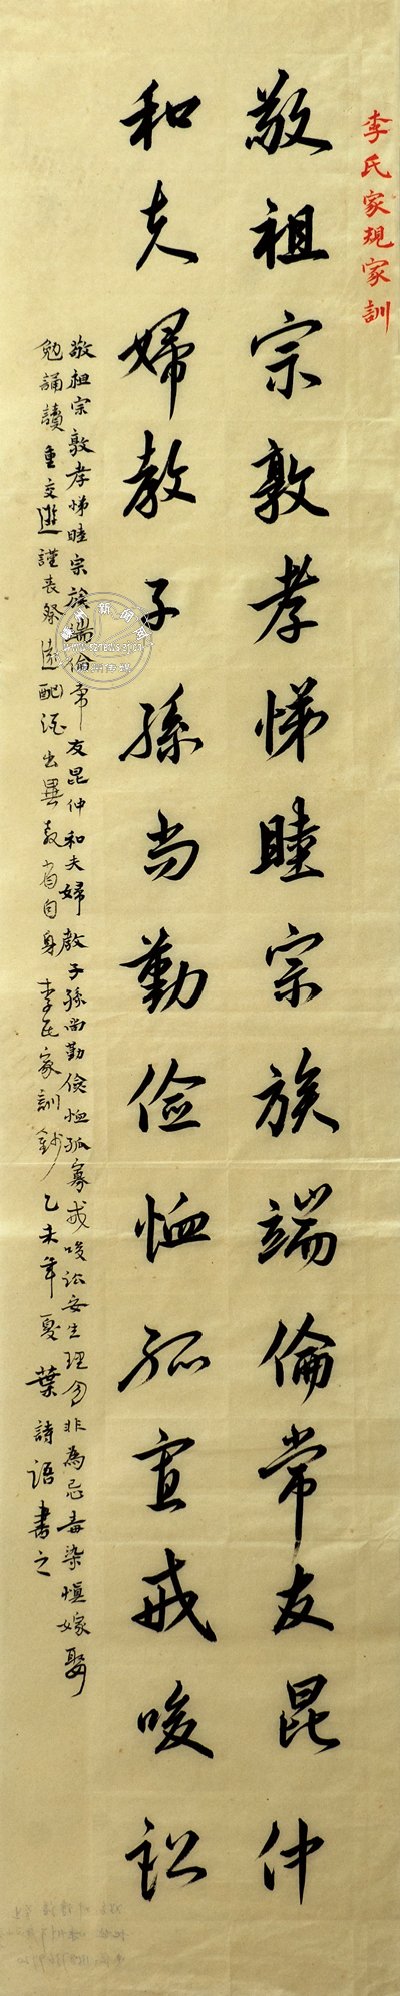 李氏家規家訓
敬祖宗敦孝悌睦宗族端倫常友昆仲
和夫婦教子孫尚勤儉恤孤宣戒唆訟
敬祖宗敦孝悌睦宗族端倫常友昆仲和夫婦教子孫尚勤儉恤孤寡戒唆訟安生理勿非為忌毒染慎嫁娶
勉誦讀重交遊謹喪祭遠酗酒出異教省自身李氏家訓鈔乙未年夏葉詩語書之